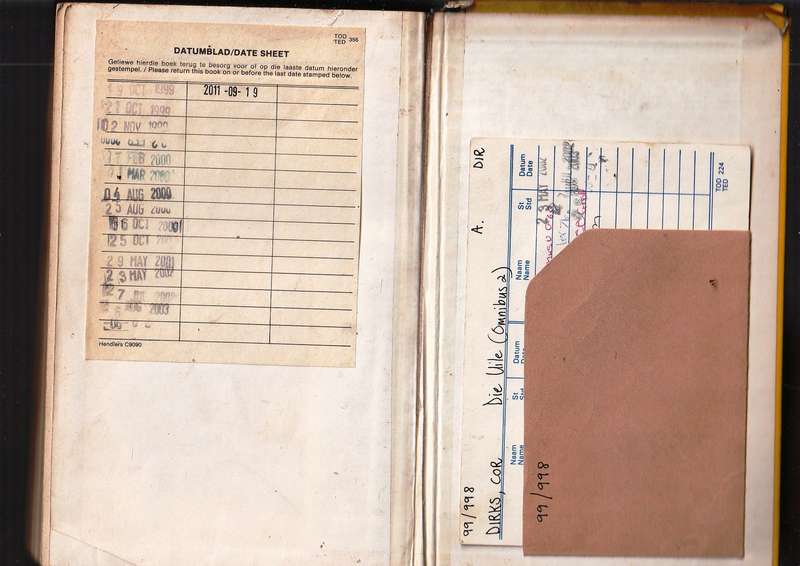 TOD 356
TED
DATUMBLAD/DATE SHEET
Geliewe hierdie boek terug te besorg voor of op die laaste datum hieronder
gestempel. / Please return this book on or before the last date stamped below.
19 OCT 1999
2011-09-19
21 OCT 1999
02 NOV 1999
FEB 2000
MAR 2000
04 AUG 2000
25 AUG 2000
06 OCT 2000
25 OCT
29 MAY 2001
23 MAY 2002
2003
Handlers C9090
99/998
A. DIR
DIRKS, COR Die Uile (Omnibus 2)
Naam
Name
St
Std
Datum
Naam
Name
St
Std
Datum
Date
23 MAY 2002
TOD 224
TED
99/998